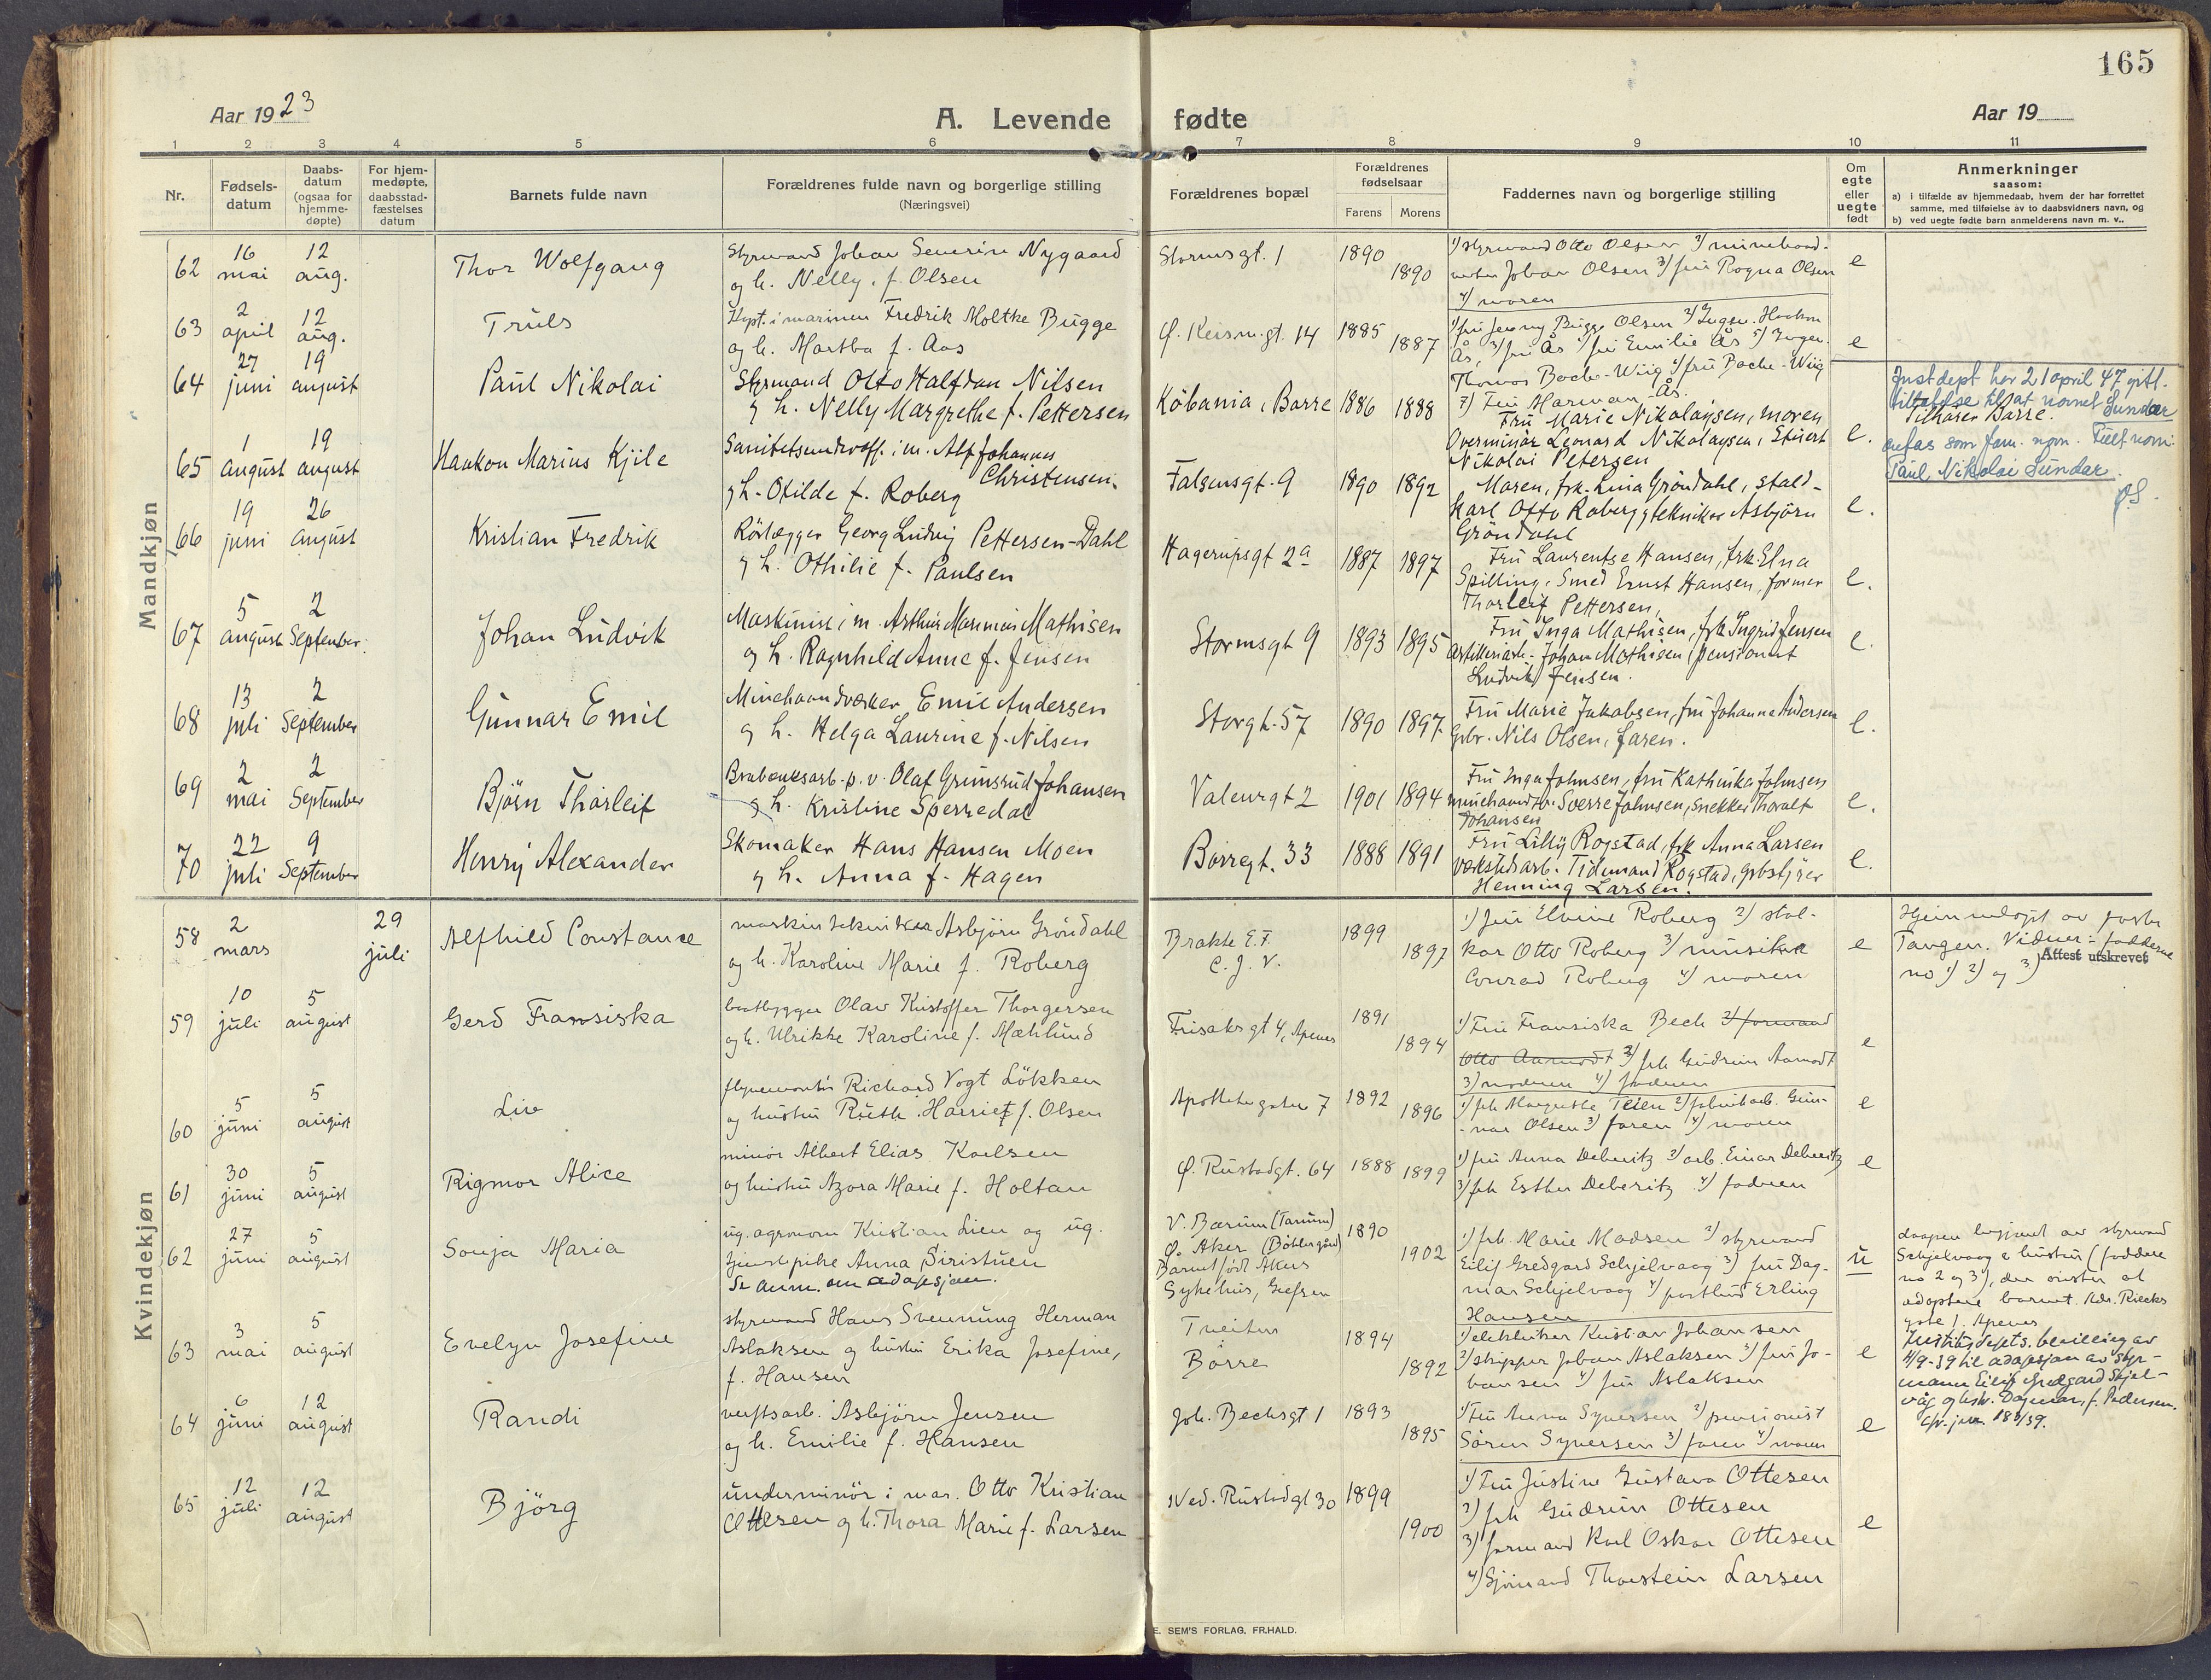 165
Aar 1923
A. Levende fødte
Aar 19
1 2 3 4 5 6 7 8 9 10 11
Nr.
Fødsels-
datum
Daabs-
datum
(ogsaa for
hjemme-
døpte)
For hjem-
medøpte,
daabsstad-
fæstelses
datum
Barnets fulde navn
Forældrenes fulde navn og borgerlige stilling
(Næringsvei)
Forældrenes bopæl
Forældrenes
fødselsaar
Farens Morens
Faddernes navn og borgerlige stilling
Om
egte
eller
uegte
født
Anmerkninger
saasom:
a) i tilfælde av hjemmedaab, hvem der har forrettet
samme, med tilføielse av to daabsvidners navn, og
b) ved uegte fødte barn anmelderens navn m. v..
Mandkjøn
62 16 mai 12 aug. Thor Wolfgang
Styrmand Johan Severin Nygaard
og h. Nelly, f. Olsen
Stormsgt. 1 1890 1890
1) styrmand Otto Olsen 2) minehaand-
verker Johan Olsen 3) fru Rogna Olsen
4) moren
e
63 2 april 12 aug. Truls
Kapt. i marinen Fredrik Moltke Bugge
og h. Martha f. Aas
Ø. Keisermgt. 14 1885 1887
1) fru Jenny Bugge Olsen 2) Ingen. Haakon
Ås, 3) fru Ås 4) fru Emilie Ås 5) Ingen.
Thomas Bache-Wiig 6) fru Bache-Wiig
7) Fru Harman Ås.
e
64 27 juni 19 august Paul Nikolai
Styrmand Otto Halfdan Nilsen
g h. Nelly Margrethe f. Pettersen
Købania, Borre 1886 1888
Fru Marie Nikolaysen, moren
Overminør Leonard Nikolaysen, Stuert
Nikolai Petersen
e.
Just dept har 21 april 47 gitt
tillatelse til at navnet Sundar
Tilhører Borre.
antas som fam. navn. Fullt navn:
Paul Nikolai Sundar.
65 1 august 19 august Haakon Marius Kjile
Sanitetsunderoff. i m. Alf Johannes
Christensen.
g h. Otilde f. Roberg
Falsensgt. 9 1890 1892
Moren, frk. Lina Grøndahl, stald-
karl Otto Roberg g tekniker Asbjørn
Grøndahl
e.
66 19 juni 26 august Kristian Fredrik
Rørlægger Georg Ludvig Pettersen-Dahl
g h. Othilie f. Paulsen
Hagerupsgt 2a 1887 1897
Fru Laurentse Hansen, frk. Elna
Spilling, Smed Ernst Hansen, former
Thorleif Pettersen,
e.
67 5 august 2 September Johan Ludvik
Maskinist i m. Arthur Marinius Mathisen
og h. Ragnhild Anne f. Jensen
Stormsgt 9 1893 1895
Fru Inga Mathisen, frk Ingrid Jensen
Artilleriarb. Johan Mathisen, pensionist
Ludvik Jensen.
e.
68 13 juli 2 September Gunnar Emil
Minehaandverker Emil Andersen
g h. Helga Laurine f. Nilsen
Storgt. 57 1890 1897
Fru Marie Jakobsen, fru Johanne Andersen
Grbr. Nils Olsen, faren.
e.
69 2 mai 2 September Bjørn Thorleif
Brabænksarb. p. v. Olaf Grimsrud Johansen
g h. Kristine Sperredal
Valeurgt 2 1901 1894
Fru Inga Johnsen, fru Kathinka Johnsen
minehaandv. Sverre Johnsen, snekker Thoralf
Johansen
e.
70 22 juli 9 September Henry Alexander
Skomaker Hans Hansen Moen
g h. Anna f. Hagen
Borregt. 33 1888 1891
Fru Lilly Rogstad, frk Anna Larsen
Verkstedsarb. Tidemand Rogstad, grbstyrer
Henning Larsen.
e.
Kvindekjøn
58 2 mars 29 juli Alfhild Constance
maskintekniker Asbjørn Grøndahl
og h. Karoline Marie f. Roberg
Brakke E.F.
C. J. V.
1899 1897
1) fru Elvine Roberg 2) stal-
kar Otto Roberg 3) musiker
Conrad Roberg 4) moren
e
Hjemmedøpt av
Tangen. Vidner = fadderne
no 1) 2) og 3)
Attest utskrevet
59 10 juli 5 august Gerd Fransiska
baatbygger Olav Kristoffer Thorgersen
og h. Ulrikke Karoline f. Mæhlund
Frisaksgt 4, Apenes 1891 1894
1) Fru Fransiska Bech 2) formand
Otto Aamodt 2) frk Gudrun Aamodt
3) moderen 4) faderen
e
60 5 juni 5 august Liv
flyvermontør Richard Vogt Løkken
og hustru Ruth Harriet f. Olsen
Apothekergaten 7 1892 1896
1) frk Margrethe Teien 2) fabrikarb. Gun-
nar Olsen 3) faren 4) moren
e
61 30 juni 5 august Rigmor Alice
minør Albert Elias Karlsen
og hustru Azora Marie f. Holtan
Ø. Rustadgt. 64 1888 1899
1) fru Anna Deberitz 2) arb. Einar Deberitz
3) frk Esther Deberitz 4) faderen
e
62 27 juni 5 august Sonja Maria
ug. agronom Kristian Lien og ug.
tjenestepike Anna Siristuen
Se anm. om adopsjon.
V. Bærum (Tanum)
Ø. Aker (Bøhlergård)
Barnet født Akers
Sykehus, Grefsen
1890 1902
1) frk. Marie Madsen 2) styrmand
Eilif Gredgard Schjelvaag 3) fru Dag-
mar Schjelvaag 4) postbud Erling
Hansen
u
daapen begjært av styrmand
Schjelvaag & hustru (faddere
no 2 og 3), der ønsker at
adoptere barnet. Adr. Riecks
gate 1. Apenes
Justitsdepts. bevilling av
4/9-39 til adopsjon av styr-
mann Eilif Gredgard Skjel-
våg og hstr. Dagmar, f. Pedersen.
63 3 mai 5 august Evelyn Josefine
styrmand Hans Svenning Herman
Aslaksen og hustru Erika Josefine,
f. Hansen
Tveiten
Borre
1894 1892
1) elektriker Kristian Johansen
2) skipper Johan Aslaksen 3) fru Jo-
hansen 4) fru Aslaksen
e
64 6 juni 12 august Randi
verftsarb. Asbjørn Jensen
og h. Emilie f. Hansen
Joh. Bechsgt 1 1893 1895
1) Fru Anna Syversen 2) pensionist
Søren Syversen 3) faren 4) moren
e
65 12 juli 12 august Bjørg
underminør i mar. Otto Kristian
Ottesen og h. Thora Marie f. Larsen
Ned. Rustadgt 30 1899 1900
1) Fru Justine Gustava Ottesen
2) frk Gudrun Ottesen
3) formand Karl Oskar Ottesen
4) Sjømand Thorstein Larsen
e
E. SEM'S FORLAG, FR.HALD.